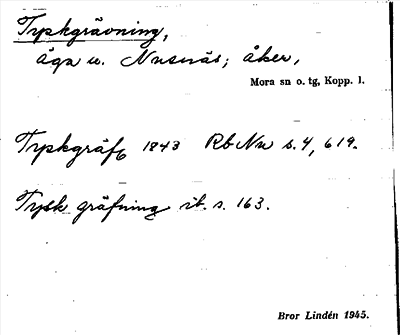 Trpkgrävning,
äga u. Nusnäs; åker,
Mora sn o. tg, Kopp. l.
Trpkgräf 1843 Rb Nu s. 4, 619.
Trpk gräfning ib. s. 163.
Bror Lindén 1945.